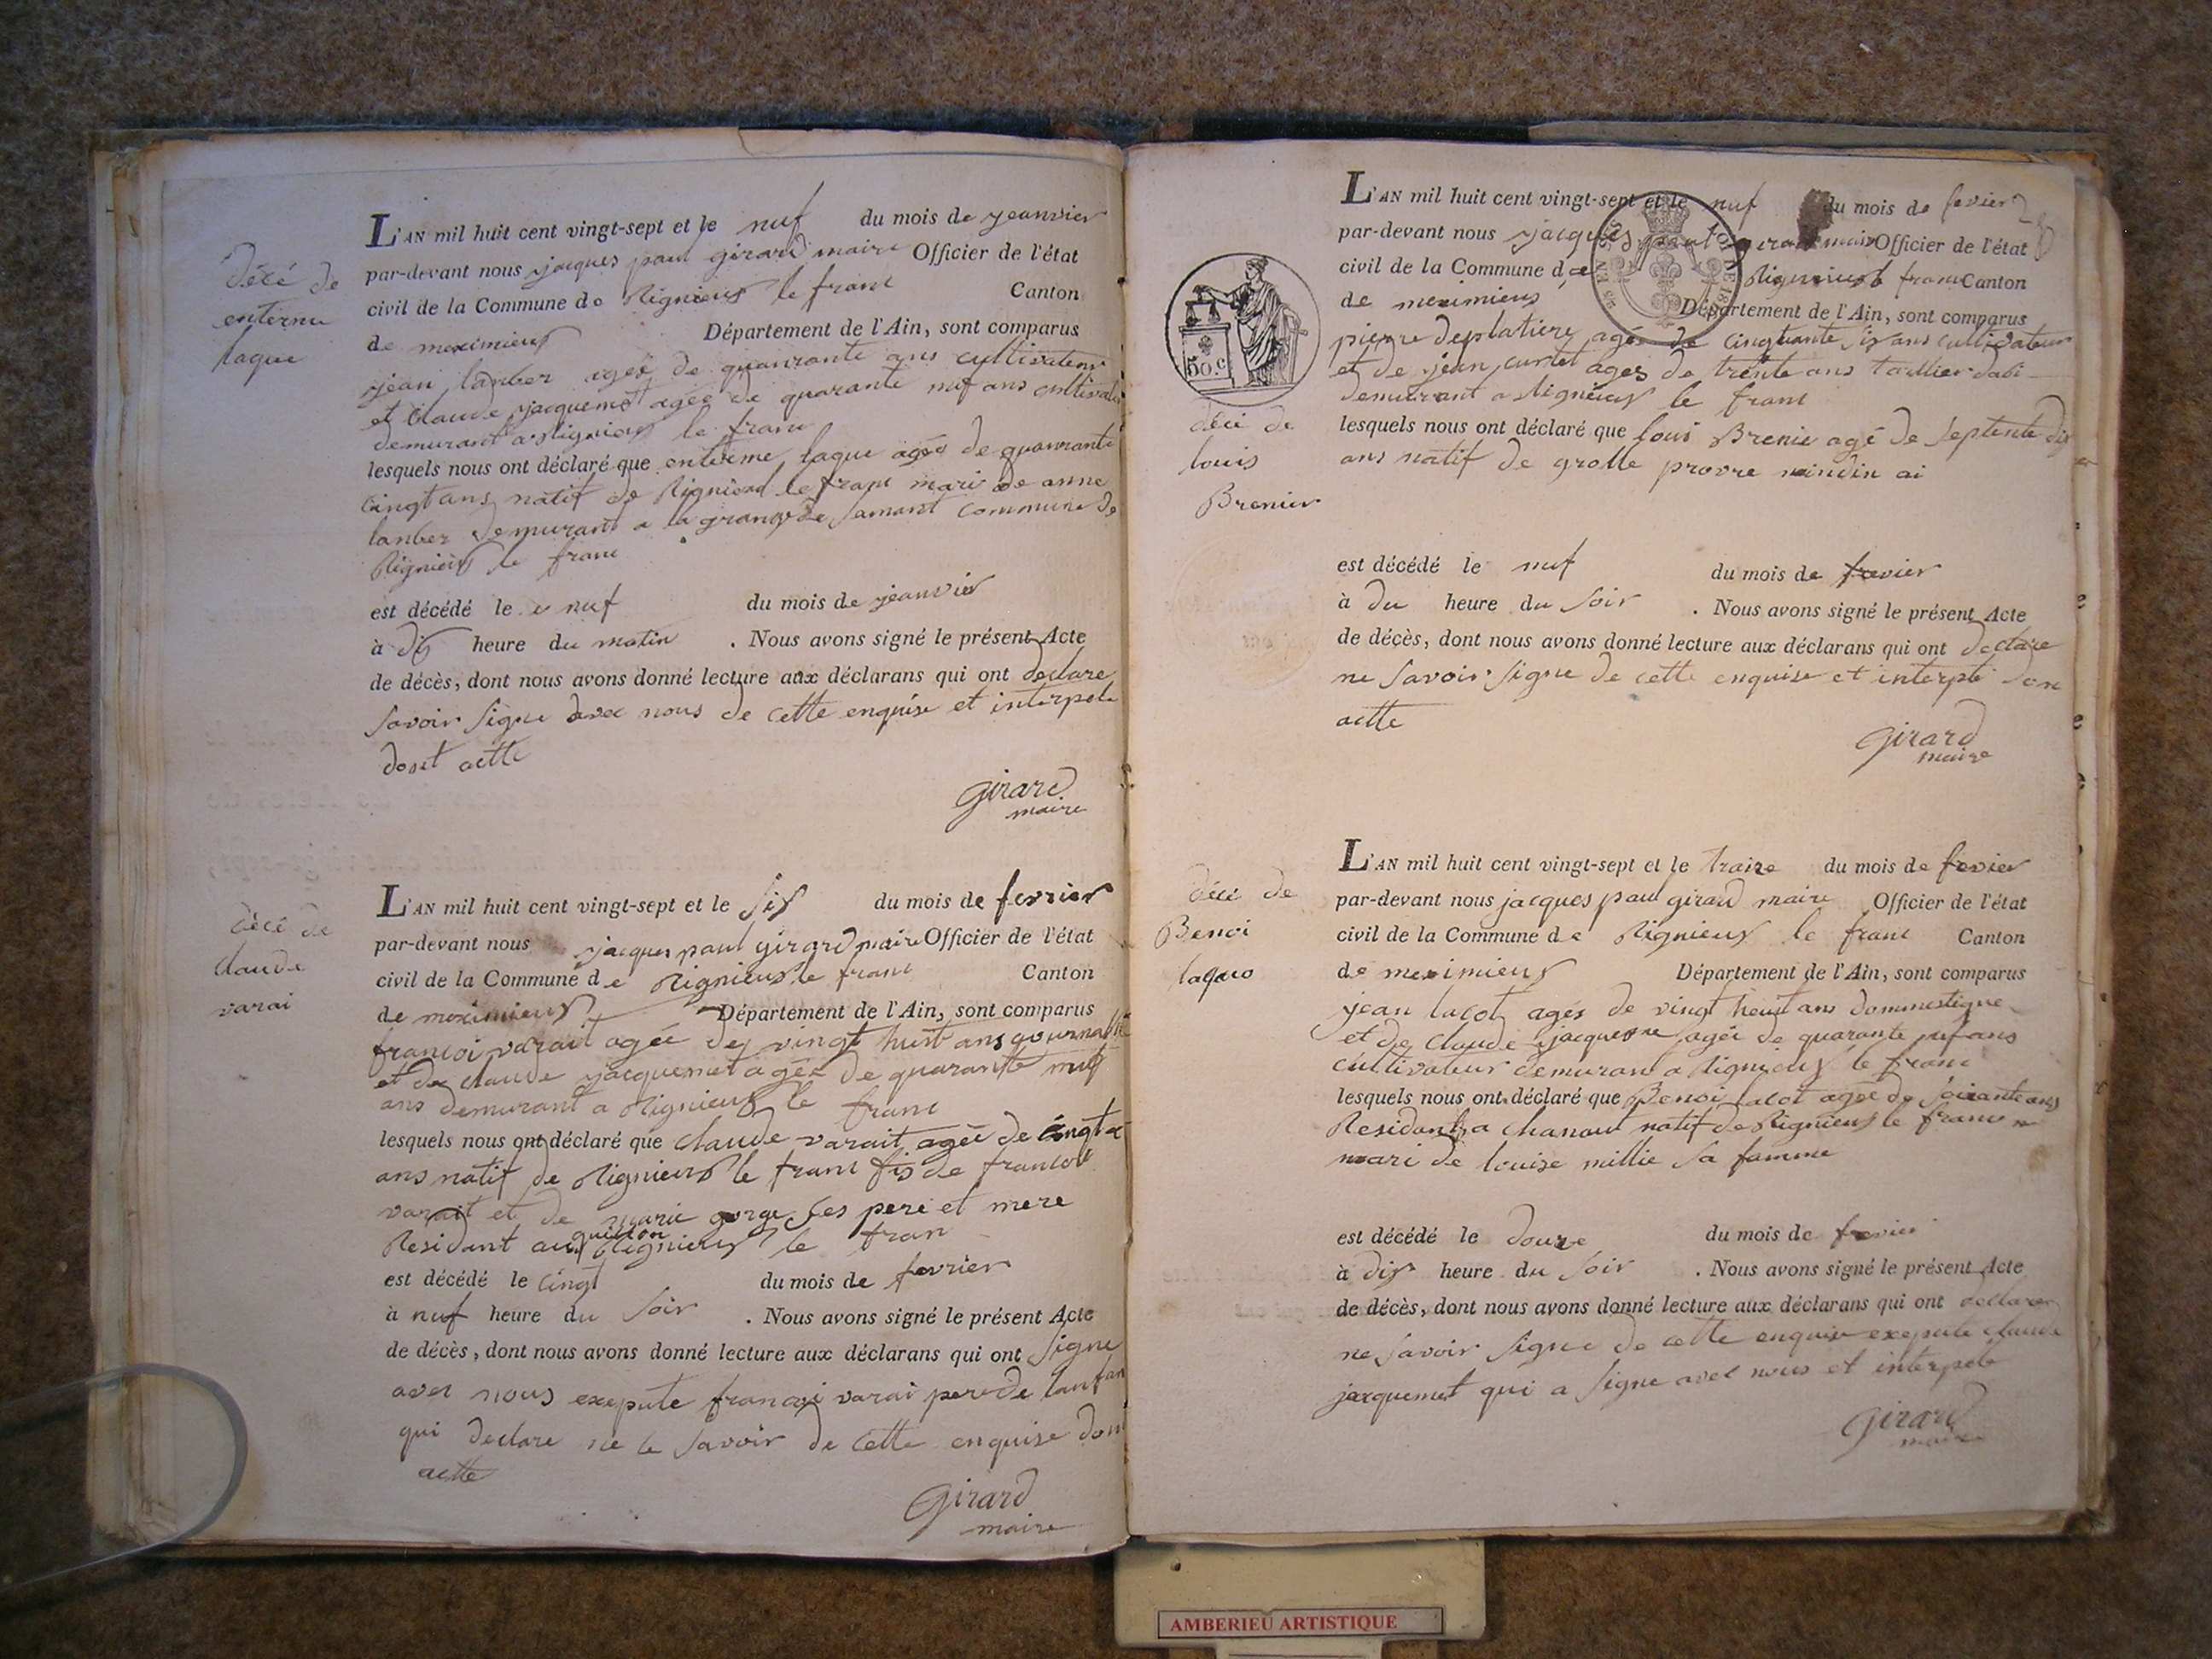 décé de
enterme
laque
L'AN mil huit cent vingt-sept et le nuf du mois de jeanvier
par-devant nous jacques paul girard maire Officier de l'état
civil de la Commune de Rignieux le franc Canton
de meximieux Département de l'Ain, sont comparus
jean lanber agéé de quanrante ans cultivateur
et claude jacquemet agéé de quarante nuf ans cultivate
demurant a Rignieux le franc
lesquels nous ont déclaré que enterme laque agéé de quanrante
cingt ans natif de Rignieux le franc mari de anne
lanber demurant a la grange de samant commune de
Rignieux le franc
est décédé le nuf du mois de jeanvier
à dix heure du matin . Nous avons signé le présent Acte
de décès, dont nous avons donné lecture aux déclarans qui ont declare
savoir signe avec nous de cette enquise et interpele
dont actte
girard
maire
décé de
claude
varai
L'AN mil huit cent vingt-sept et le six du mois de fevrier
par-devant nous jacques paul girard maire Officier de l'état
civil de la Commune de Rignieux le franc Canton
de meximieux Département de l'Ain, sont comparus
francoi varait agéé de vingt huit ans
et de claude jacquemet agéé de quarante nuf
ans demurant a Rignieux le franc
lesquels nous ont déclaré que claude varait agéé de
ans natif de Rignieux le franc fis de francoi
varait et de marie gorge ses pere et mere
guillon
Residant au Rignieux le fran
est décédé le cingt du mois de fevrier
à nuf heure du soir . Nous avons signé le présent Acte
de décès, dont nous avons donné lecture aux déclarans qui ont signe
avec nous exepute francoi varai pere de lanfan
qui declare ne le savoir de cette enquise dont
actte
girard
maire
L'AN mil huit cent vingt-sept et le nuf du mois de fevier
par-devant nous jacques paul girard maire Officier de l'état
civil de la Commune de Rignieux le franc Canton
de meximieux Département de l'Ain, sont comparus
50 c
pierre deplatiere agés de cingtuante six ans cultivateur
et de jean curtet ages de trente ans taillier dabi
demurant a Rignieux le franc
décé de
louis
Brenier
lesquels nous ont déclaré que loui Brenie agé de septente dix
ans natif de grolle provre
est décédé le nuf du mois de fevier
à du heure du soir . Nous avons signé le présent Acte
de décès, dont nous avons donné lecture aux déclarans qui ont declare
ne savoir signe de cette enquise et interpele don
actte
girard
maire
décé de
Benoi
lacot
L'AN mil huit cent vingt-sept et le traize du mois de fevier
par-devant nous jacques paul girard maire Officier de l'état
civil de la Commune de Rignieux le franc Canton
de meximieux Département de l'Ain, sont comparus
jean lacot agés de vingt heuit ans dommestique
et de claude jacquemet agéé de quarante nuf ans
cultivateur demurant a Rignieux le franc
lesquels nous ont déclaré que Benoi lacot agéé de soixante ans
Residant a Chanout natif de Rignieux le franc
mari de louise millie sa famme
est décédé le douze du mois de fevier
à dix heure du soir . Nous avons signé le présent Acte
de décès, dont nous avons donné lecture aux déclarans qui ont declare
ne savoir signe de cette enquise exepute claude
jacquemet qui a signe avec nous et interpele
girard
maire
AMBERIEU ARTISTIQUE